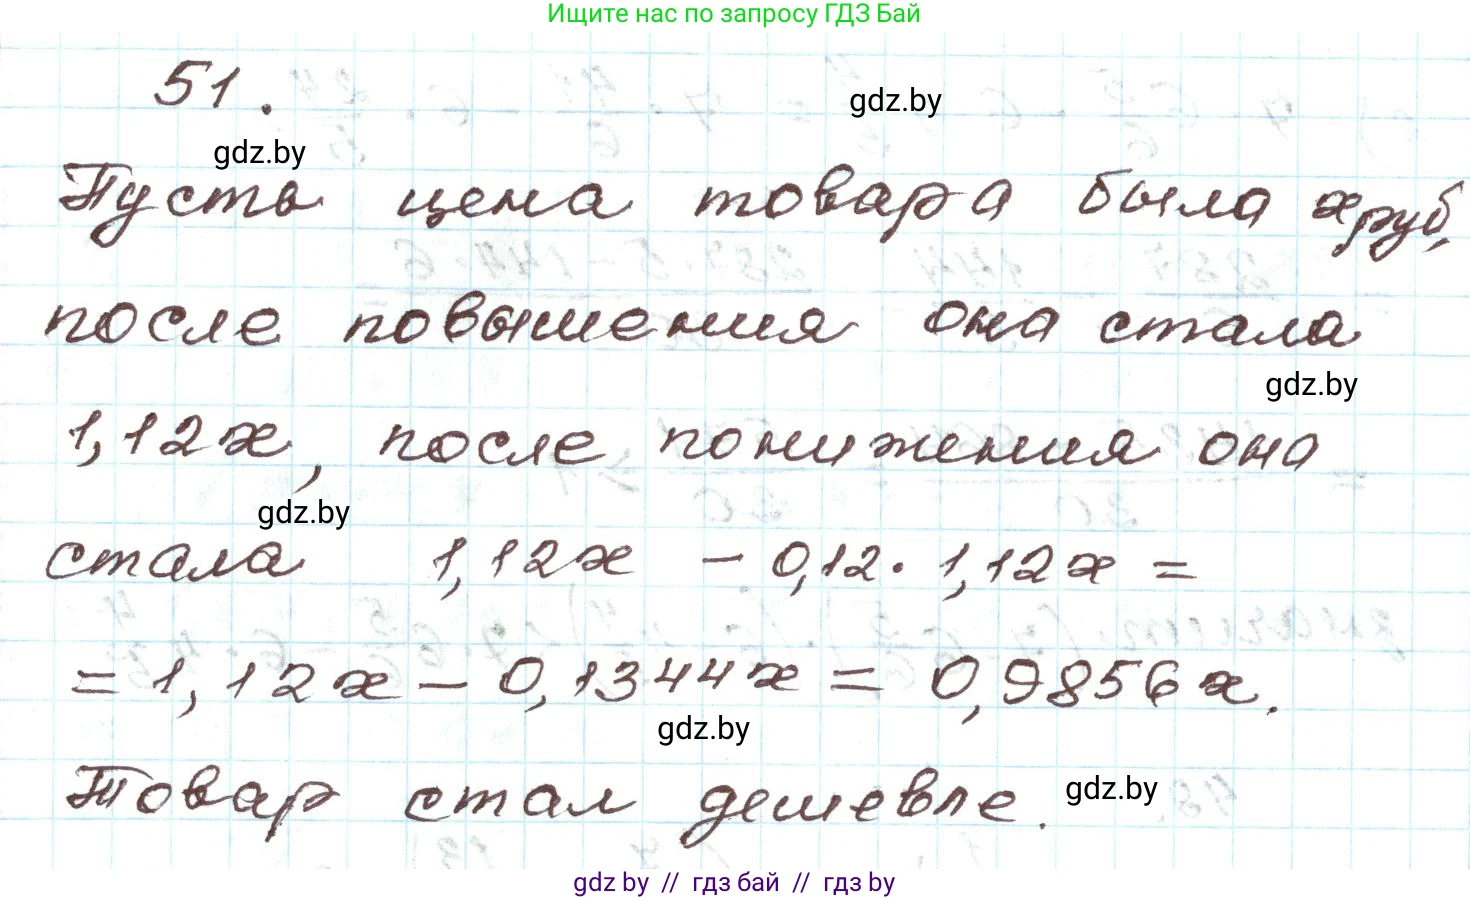 Ищите нас по запросу ГДЗ Бай
51.
gdz.by
gdz.by
Пусть цена товара была x руб,
после повышения она стала
gdz.by
1,12x, после понижения она
gdz.by
стала 1,12x - 0,12 · 1,12x =
= 1,12x - 0,1344x = 0,9856x.
gdz.by
Товар стал дешевле.
gdz.by
gdz by // гдз бай // гдз by